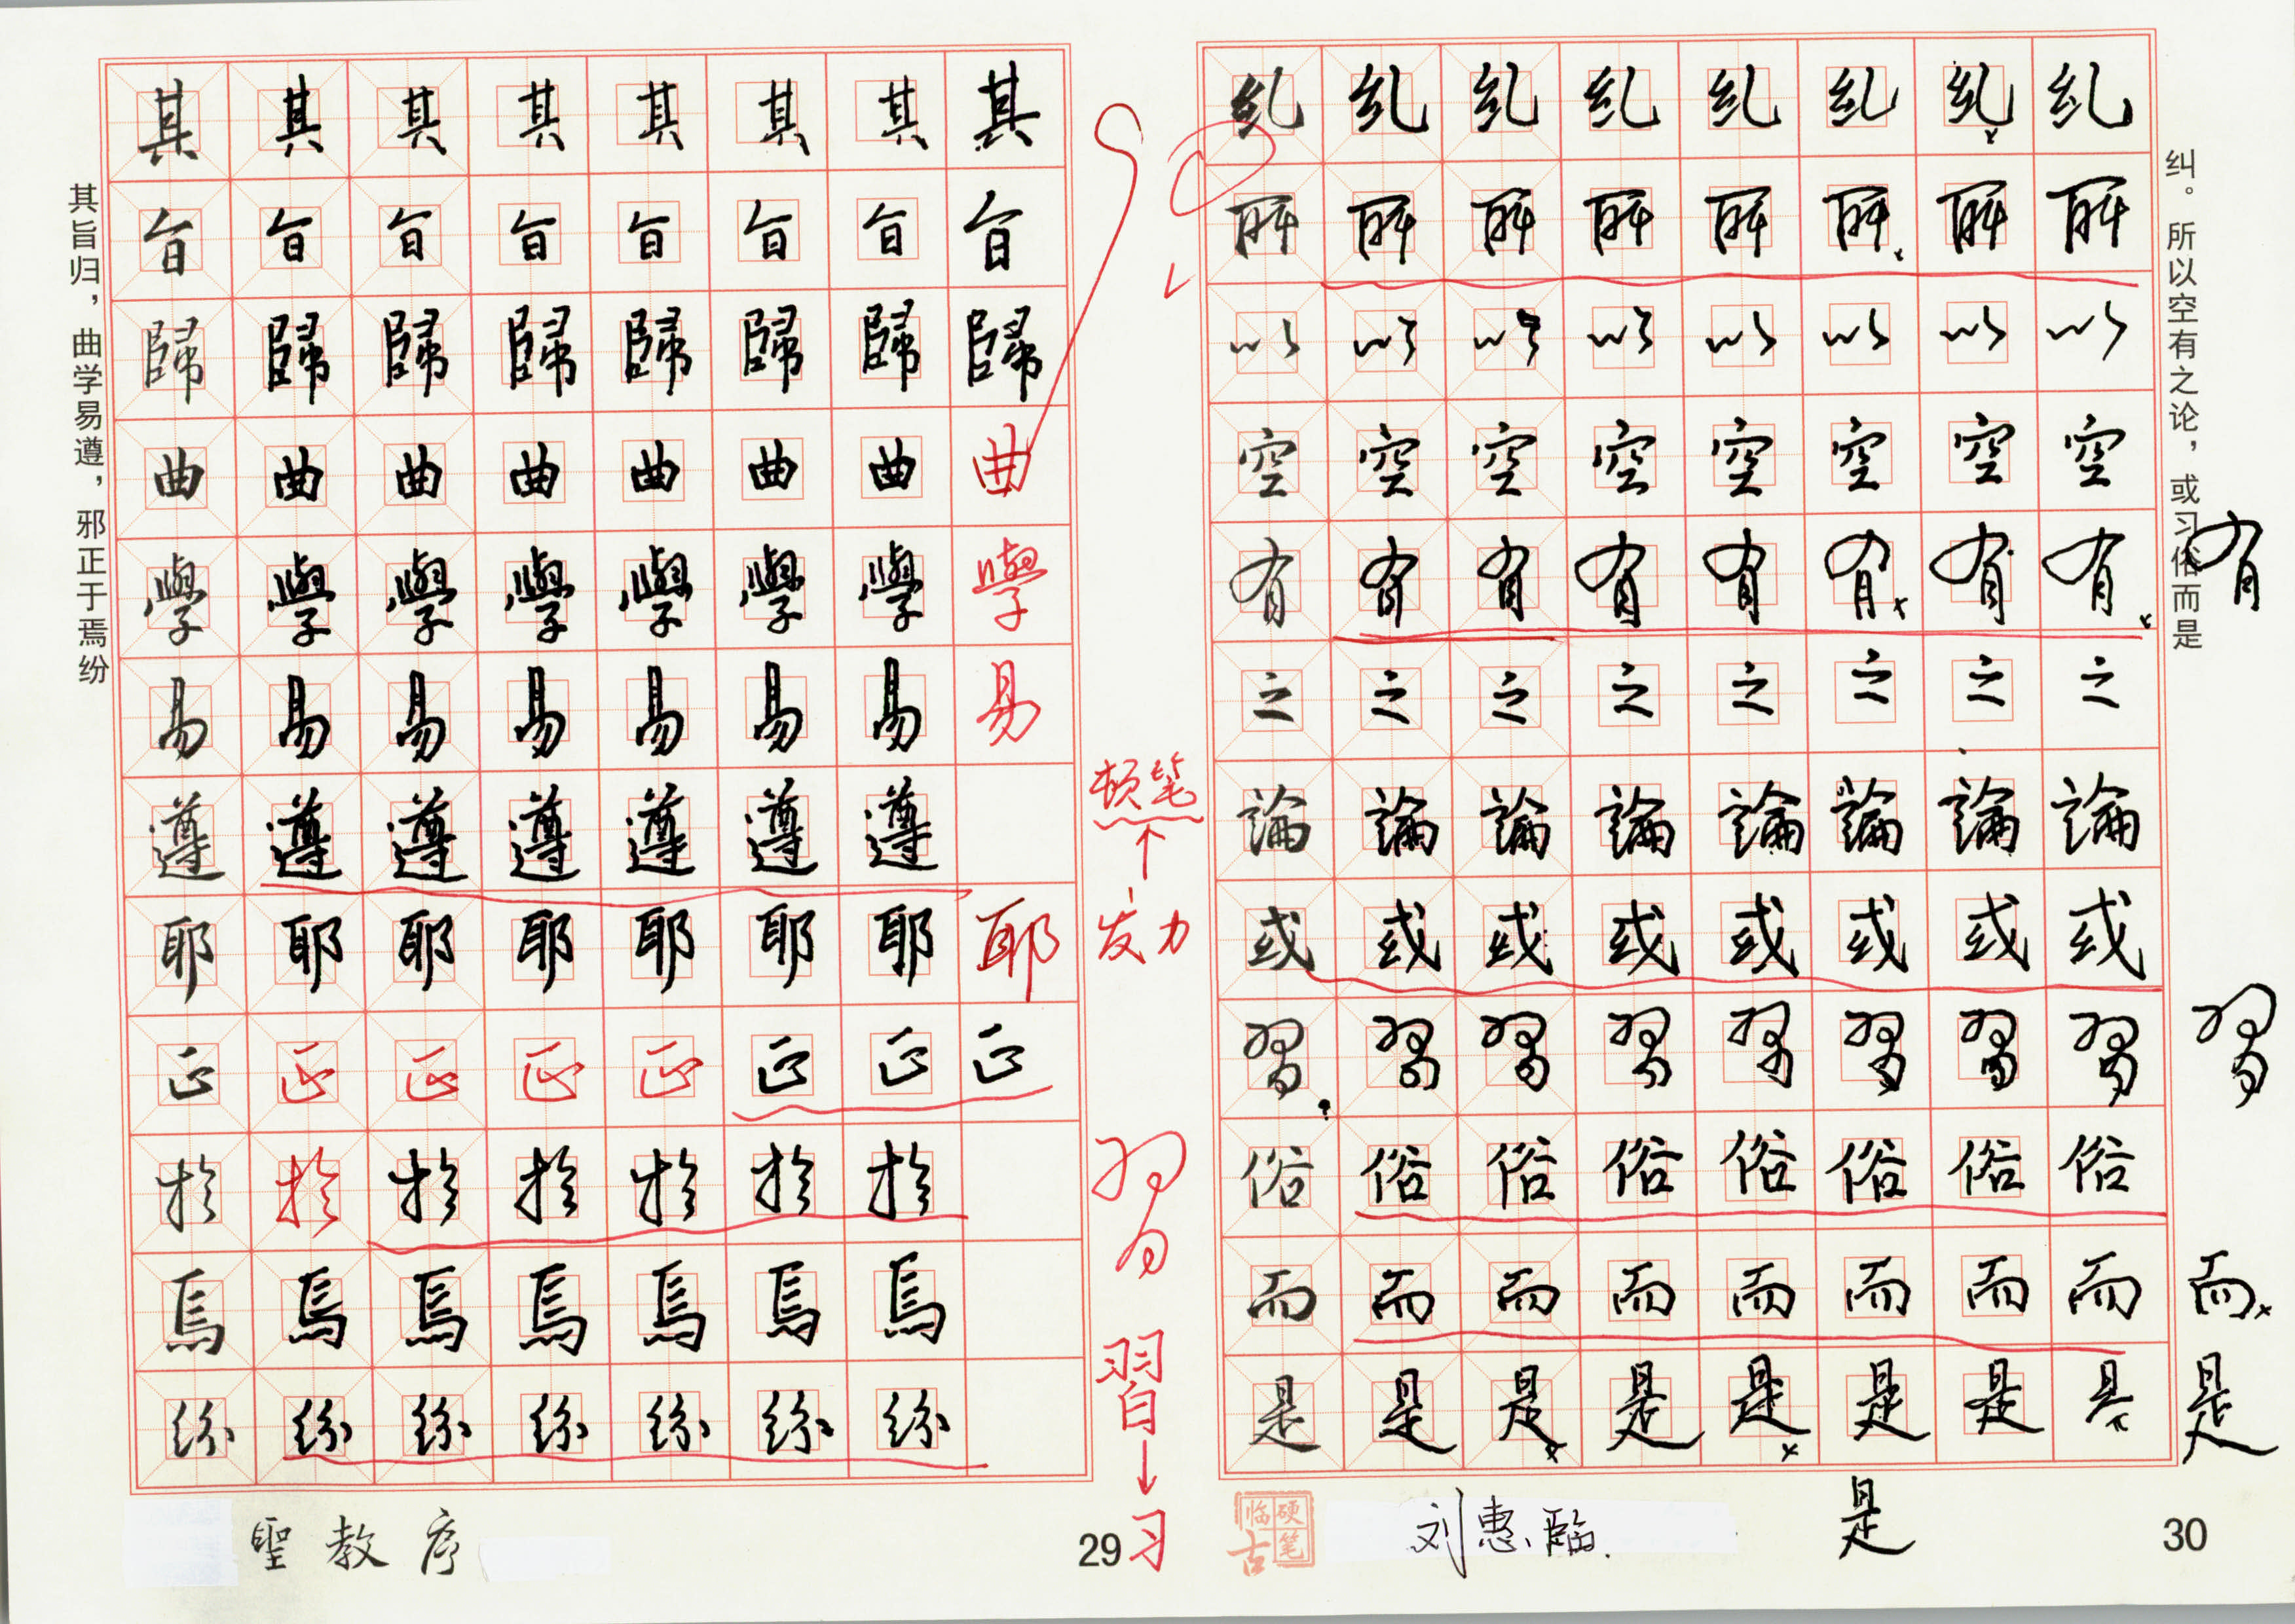 其旨归，曲学易遵，邪正于焉纷
其其其其其其其其
旨旨旨旨旨旨旨旨
歸歸歸歸歸歸歸歸
曲曲曲曲曲曲曲曲
學學學學學學學學
易易易易易易易易
遵遵遵遵遵遵遵
耶耶耶耶耶耶耶耶
正正正正正正正正
於於於於於於於
焉焉焉焉焉焉焉
紛紛紛紛紛紛紛
聖教序
29
顿笔
↑
发力
習
習
↓
习
糾糾糾糾糾糾糾糾
所所所所所所所所
以以以以以以以以
空空空空空空空空
有有有有有有有有有
之之之之之之之之
論論論論論論論論
或或或或或或或或
習習習習習習習習習
俗俗俗俗俗俗俗俗
而而而而而而而而而
是是是是是是是是是
是
纠。所以空有之论，或习俗而是
硬笔临古
刘惠臨
30